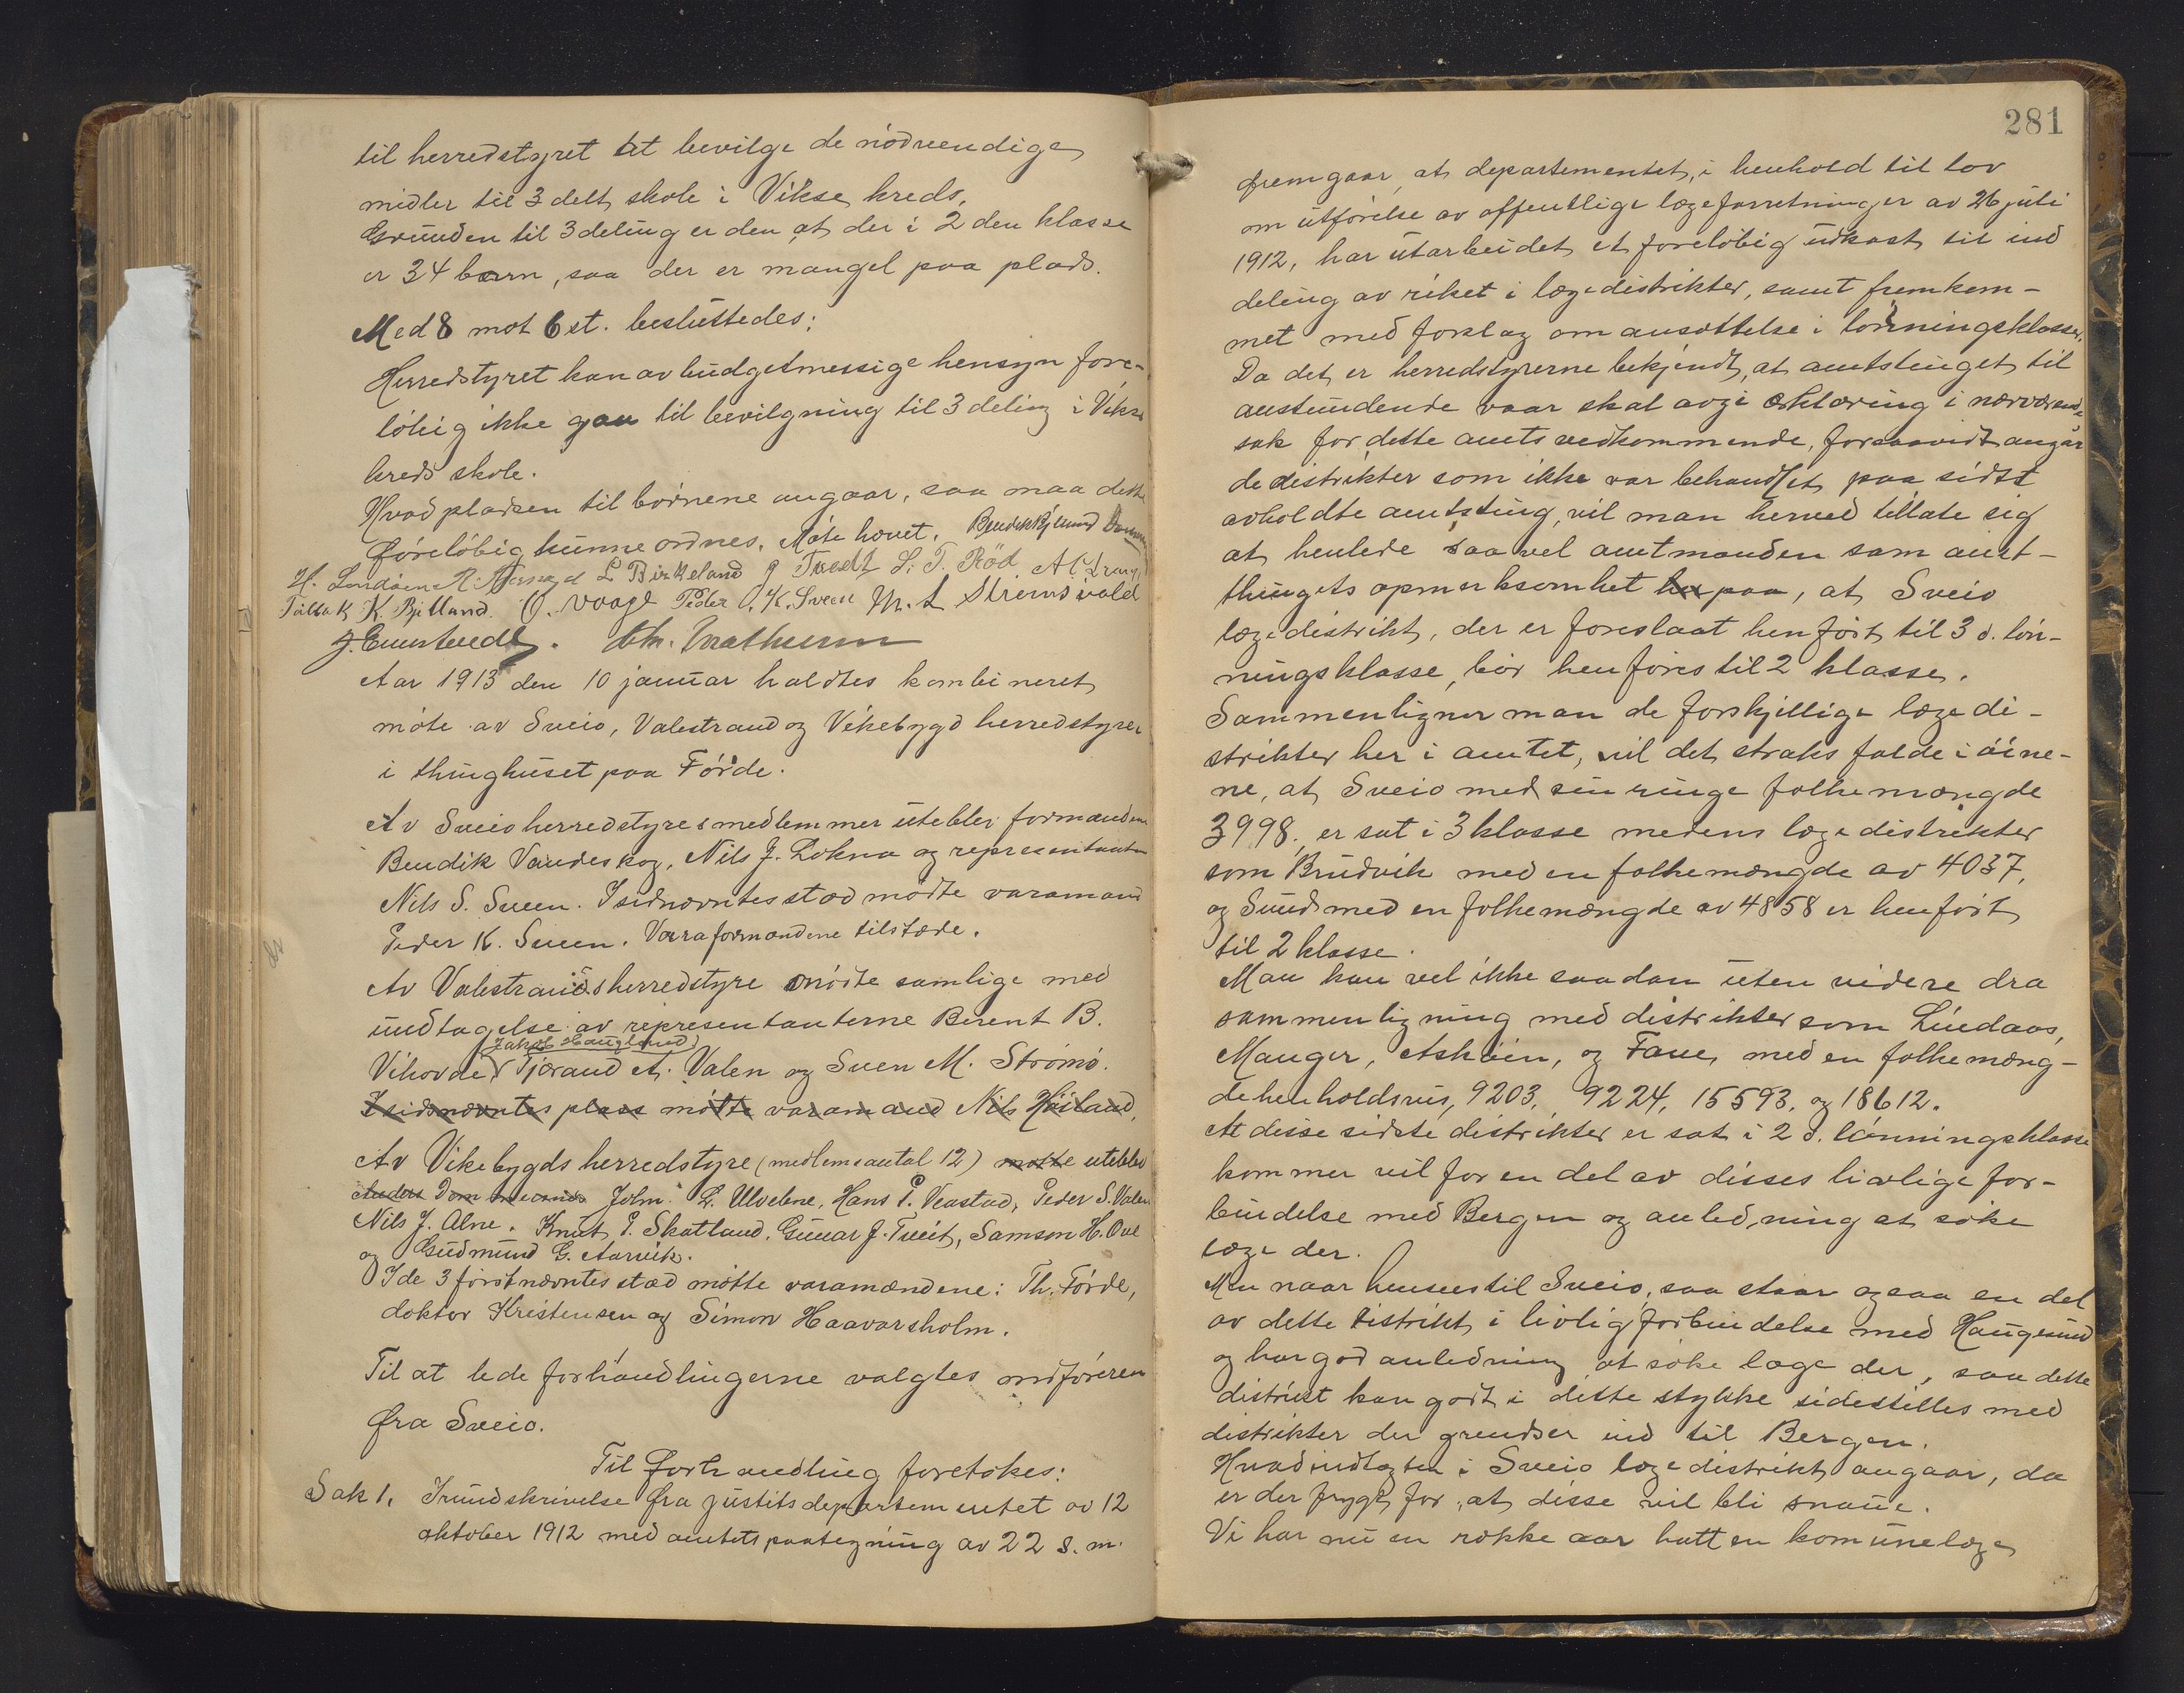 til herredstyret at bevilge de nödvendige
midler til 3 delt skole i Vikse kreds.
Grunden til 3 deling er den at der i 2 den klasse
er 34 barn, saa der er mangel paa plads.
Med 8 mot 6 st. besluttedes:
Herredstyret kan av budgetmessige hensyn fore-
löbig ikke gaa til bevilgning til 3 deling i Vikse
kreds skole.
Hvad pladsen til börnene angaar, saa maa dette
foreløbig kunne ordnes. Möte hævet.
L Birkeland J Tveit L. T. Röd
K. Bjelland. O. Vaage Peder K. Sveen M. L Strømsvold
Aar 1913 den 10 januar holdtes kombineret
möte av Sveio, Valestrand og Vikebygd herredstyrer
i thinghuset paa Förde.
Av Sveio herredstyresmedlemmer uteblev formændene
Bendik Vandeskog, Nils J. Lokna og representanten
Nils S. Sveen. I sidnævntes sted mödte varamand
Peder K. Sveen. Varaformændene tilstæde.
Av Valestrands herredstyre mödte samlige med
undtagelse av representanterne Berent B.
Jakob Haugland
Vihovde, Tjærand A. Valen og Sven M. Strömö.
I sidsnævntes plass mötte varamand Nils Höiland,
Av Vikebygds herredstyre (medlemsantal 12) mötte uteblev
Anders John. L. Ulvelne, Hans P. Vestad, Peder S. Valen
Nils J. Alne. Knut P. Skatland, Gunar J. Tveit, Samson H.
og Gudmund G. Aarvik.
I de 3 förstnævntes sted mötte varamændene: Th. Förde,
doktor Kristensen og Simon Haavarsholm.
Til at lede forhandlingerne valgtes ordföreren
fra Sveio.
Til forhandling foretokes:
Sak 1. I rundskrivelse fra justitsdepartementet av 12
oktober 1912 med amtets paategning av 22 s. m.
281
fremgaar, at departementet, i henhold til lov
om utförelse av offentlige lægeforretninger av 26 juli
1912, har utarbeidet et foreløbig utkast til ind
deling av riket i lægedistrikter, samt fremkom-
met med forslag om ansættelse i lönningsklasser.
Da det er herredstyrerne bekjendt, at amtstinget til
anstundende vaar skal avgi erklæring i nærværende
sak for dette amts vedkommende, forsaavidt angår
de distrikter som ikke var behandlet paa sidst
avholdte amtsting, vil man herved tillate sig
at henlede saavel amtmanden som amt-
thingets opmerksomhet her paa, at Sveio
lægedistrikt, der er foreslaat henfört til 3 d. lön-
ningsklasse, bör henföres til 2 klasse.
Sammenligner man de forskjellige lægedi-
strikter her i amtet, vil det straks falde i öine-
ne, at Sveio med sin ringe folkemængde
3998, er sat i 3 klasse medens lægedistrikter
som Brudvik med en folkemængde av 4037,
og Sund med en folkemængde av 4858 er henfört
til 2 klasse.
Man kan vel ikke saadan uten videre dra
sammenligning med distrikter som Lindaas,
Manger, Asköen, og Fane, med en folkemæng-
de henholdsvis, 9203, 9224, 15593, og 18612.
At disse sidste distrikter er sat i 2 d. lönningsklasse
kommer vil for en del av disses livlige for-
bindelse med Bergen og anledning at söke
læge der.
Men naar henseestil Sveio, saa staar ogsaa en del
av dette distrikt i livlig forbindelse med Haugesund
og har god anledning at söke læge der, saa dette
distrikt kan godt i dette stykke sidestilles med
distrikter der grendser ind til Bergen.
Hvad indtægten i Sveio lægedistrikt angaar, da
er der frygt for, at disse vil bli snaue.
Vi har nu en række aar hatt en komunelæge